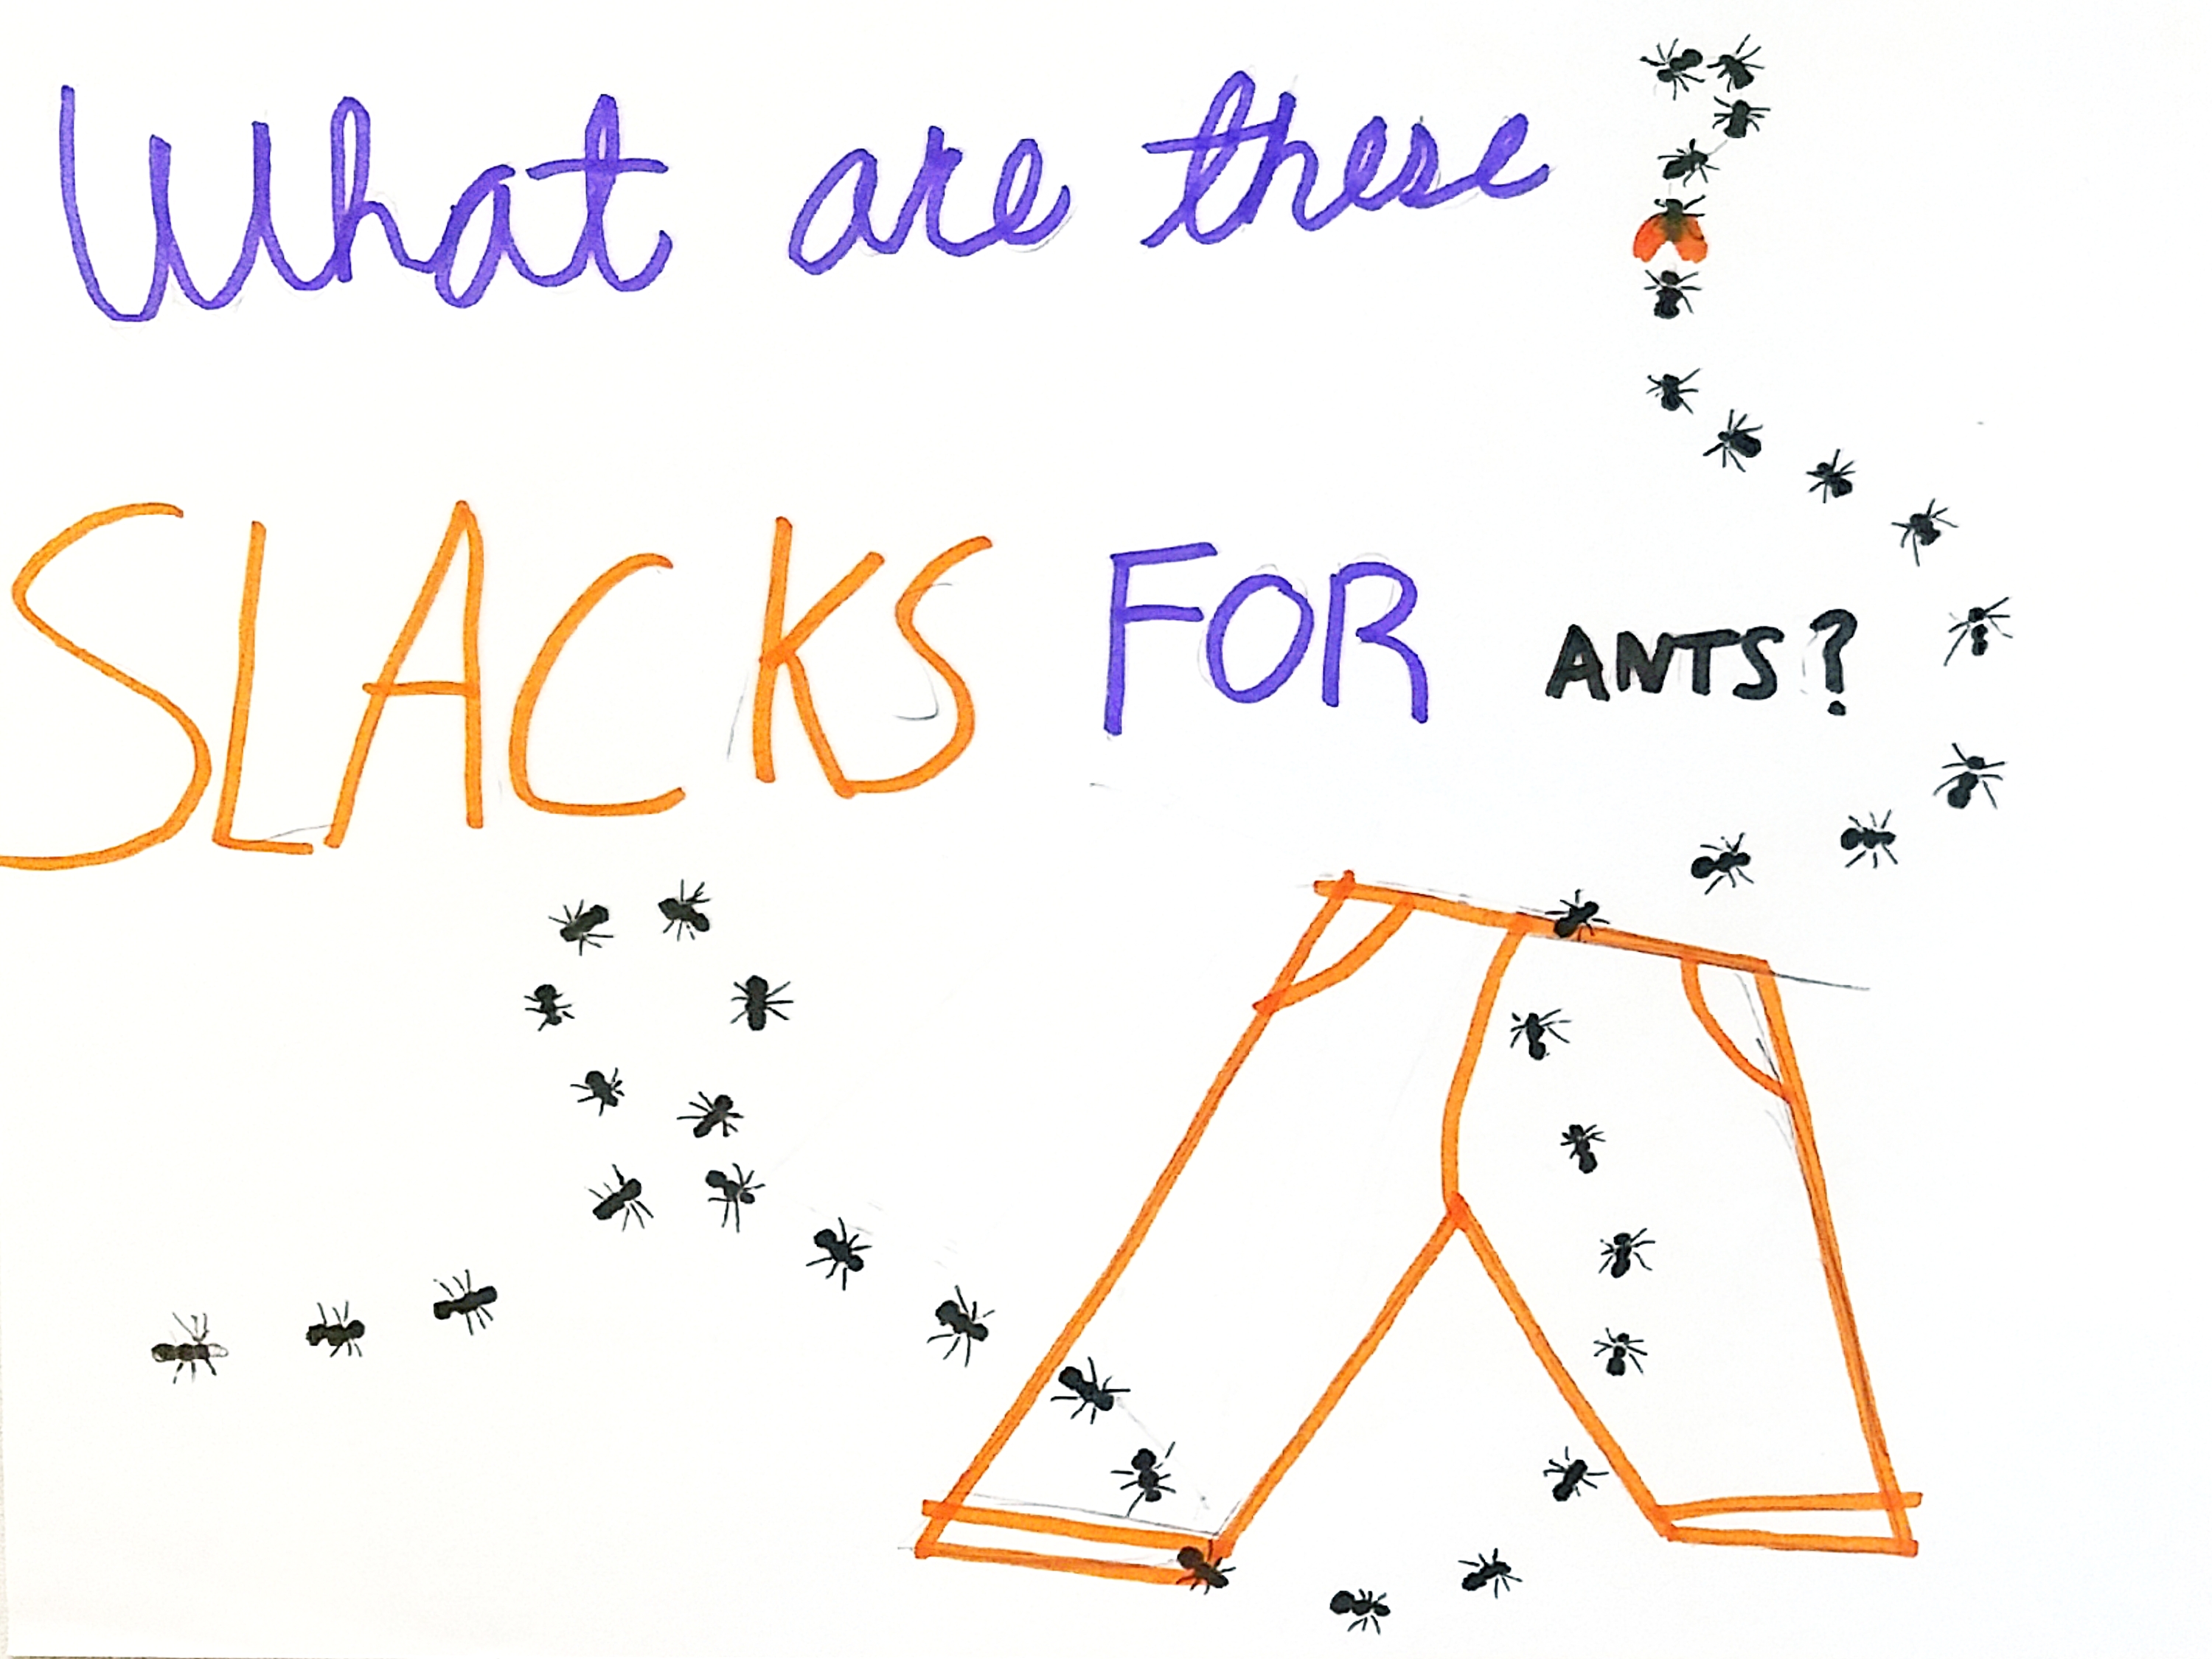 What are these
SLACKS FOR ANTS?